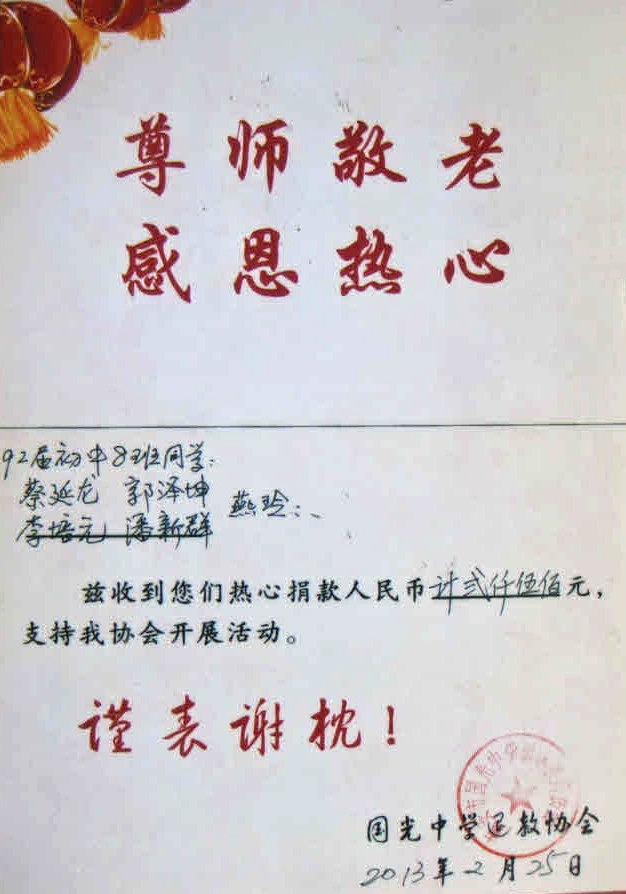 尊师敬老
感恩热心
92届初中8班同学:
蔡延龙 郭泽坤 燕玲:
李培元 潘新群
兹收到您们热心捐款人民币计贰仟伍佰元,
支持我协会开展活动。
谨表谢枕!
国光中学退教协会
2013年2月25日